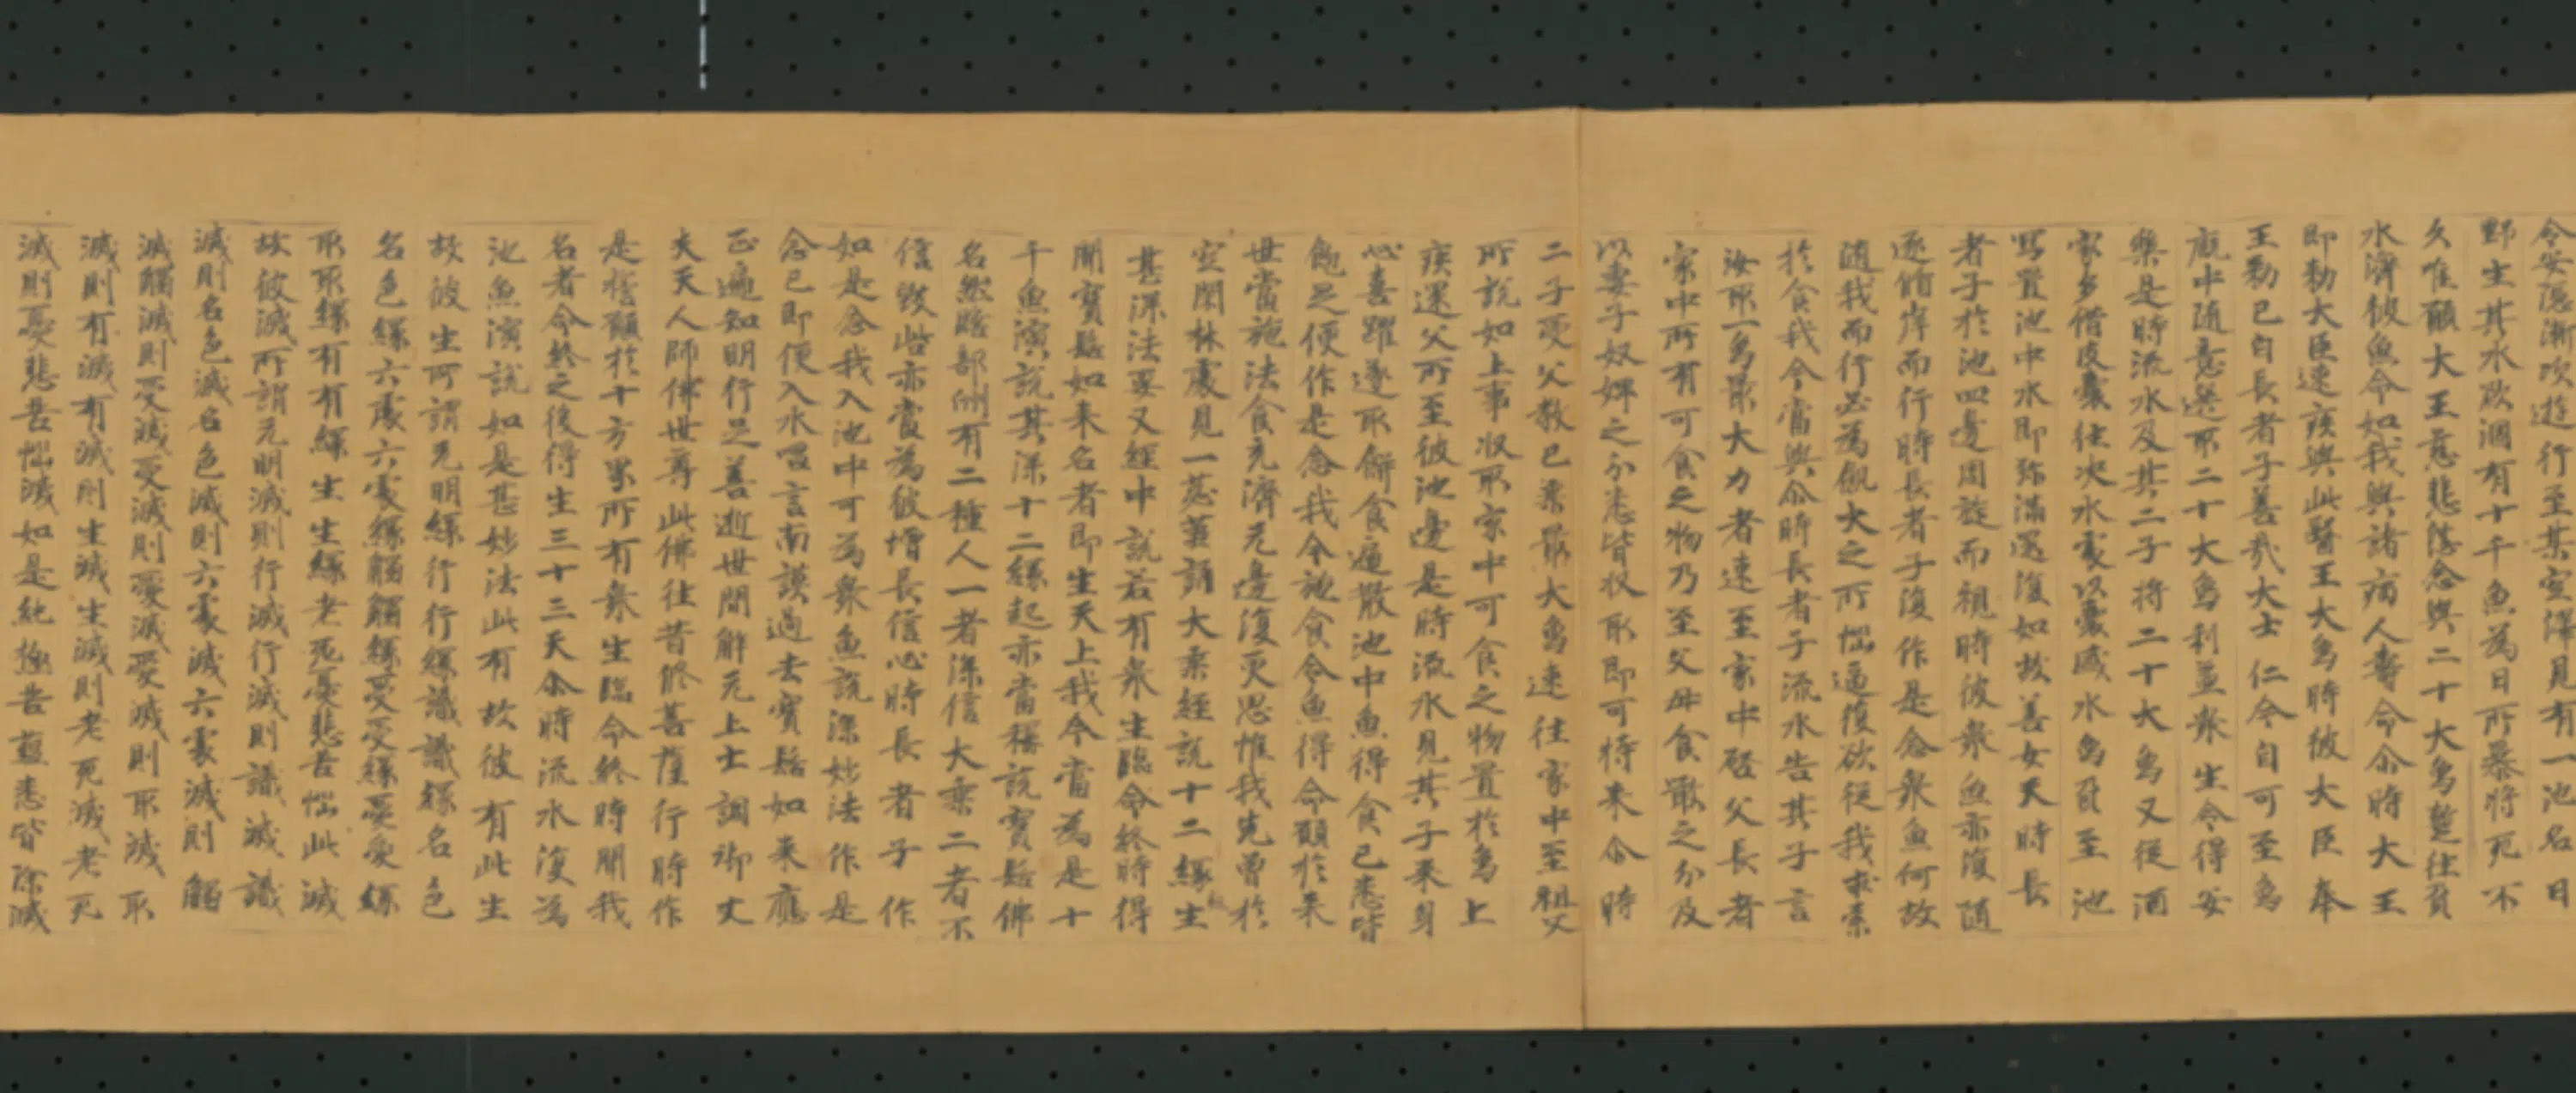 令安隱漸次遊行至某空澤見有一池名曰
野生其水欲涸有十千魚為日所暴將死不
久唯願大王慈悲愍念與二十大象蹔往負
水濟彼魚命如我與諸病人壽命尒時大王
即勅大臣速疾與此醫王大象時彼大臣奉
王勅已白長者子善哉大士仁今自可至象
廐中隨意選取二十大象利益衆生令得安
樂是時流水及其二子將二十大象又從酒
家多借皮囊往决水處以囊盛水象負至池
寫置池中水即弥滿還復如故善女天時長
者子於池四邊周旋而視時彼衆魚亦復隨
逐循岸而行時長者子復作是念衆魚何故
隨我而行必為飢火之所惱逼復欲從我求索
於食我今當與尒時長者子流水告其子言
汝取一象最大力者速至家中啓父長者
家中所有可食之物乃至父母食噉之分及
以妻子奴婢之分悉皆收取即可持来尒時
二子受父教已乘最大象速往家中至祖父
所說如上事收取家中可食之物置於象上
疾還父所至彼池邊是時流水見其子来身
心喜躍遂取餅食遍散池中魚得食已悉皆
飽足便作是念我今施食令魚得命願於来
世當施法食充濟无邊復更思惟我先曾於
空閑林處見一苾蒭誦大乘經說十二緣生
甚深法要又經中說若有衆生臨命終時得
聞寶髻如来名者即生天上我今當為是十
千魚演說甚深十二緣起亦當稱說寶髻佛
名然贍部洲有二種人一者深信大乘二者不
信毀呰亦當為彼增長信心時長者子作
如是念我入池中可為衆魚說深妙法作是
念已即便入水唱言南謨過去寶髻如来應
正遍知明行足善逝世間解无上士調御丈
夫天人師佛世尊此佛往昔修菩薩行時作
是誓願於十方界所有衆生臨命終時聞我
名者命終之後得生三十三天尒時流水復為
池魚演說如是甚妙法此有故彼有此生
故彼生所謂无明緣行行緣識識緣名色
名色緣六處六處緣觸觸緣受受緣愛愛緣
取取緣有有緣生生緣老死憂悲苦惱此滅
故彼滅所謂无明滅則行滅行滅則識滅識
滅則名色滅名色滅則六處滅六處滅則觸
滅觸滅則受滅受滅則愛滅愛滅則取滅取
滅則有滅有滅則生滅生滅則老死滅老死
滅則憂悲苦惱滅如是純極苦蘊悉皆除滅